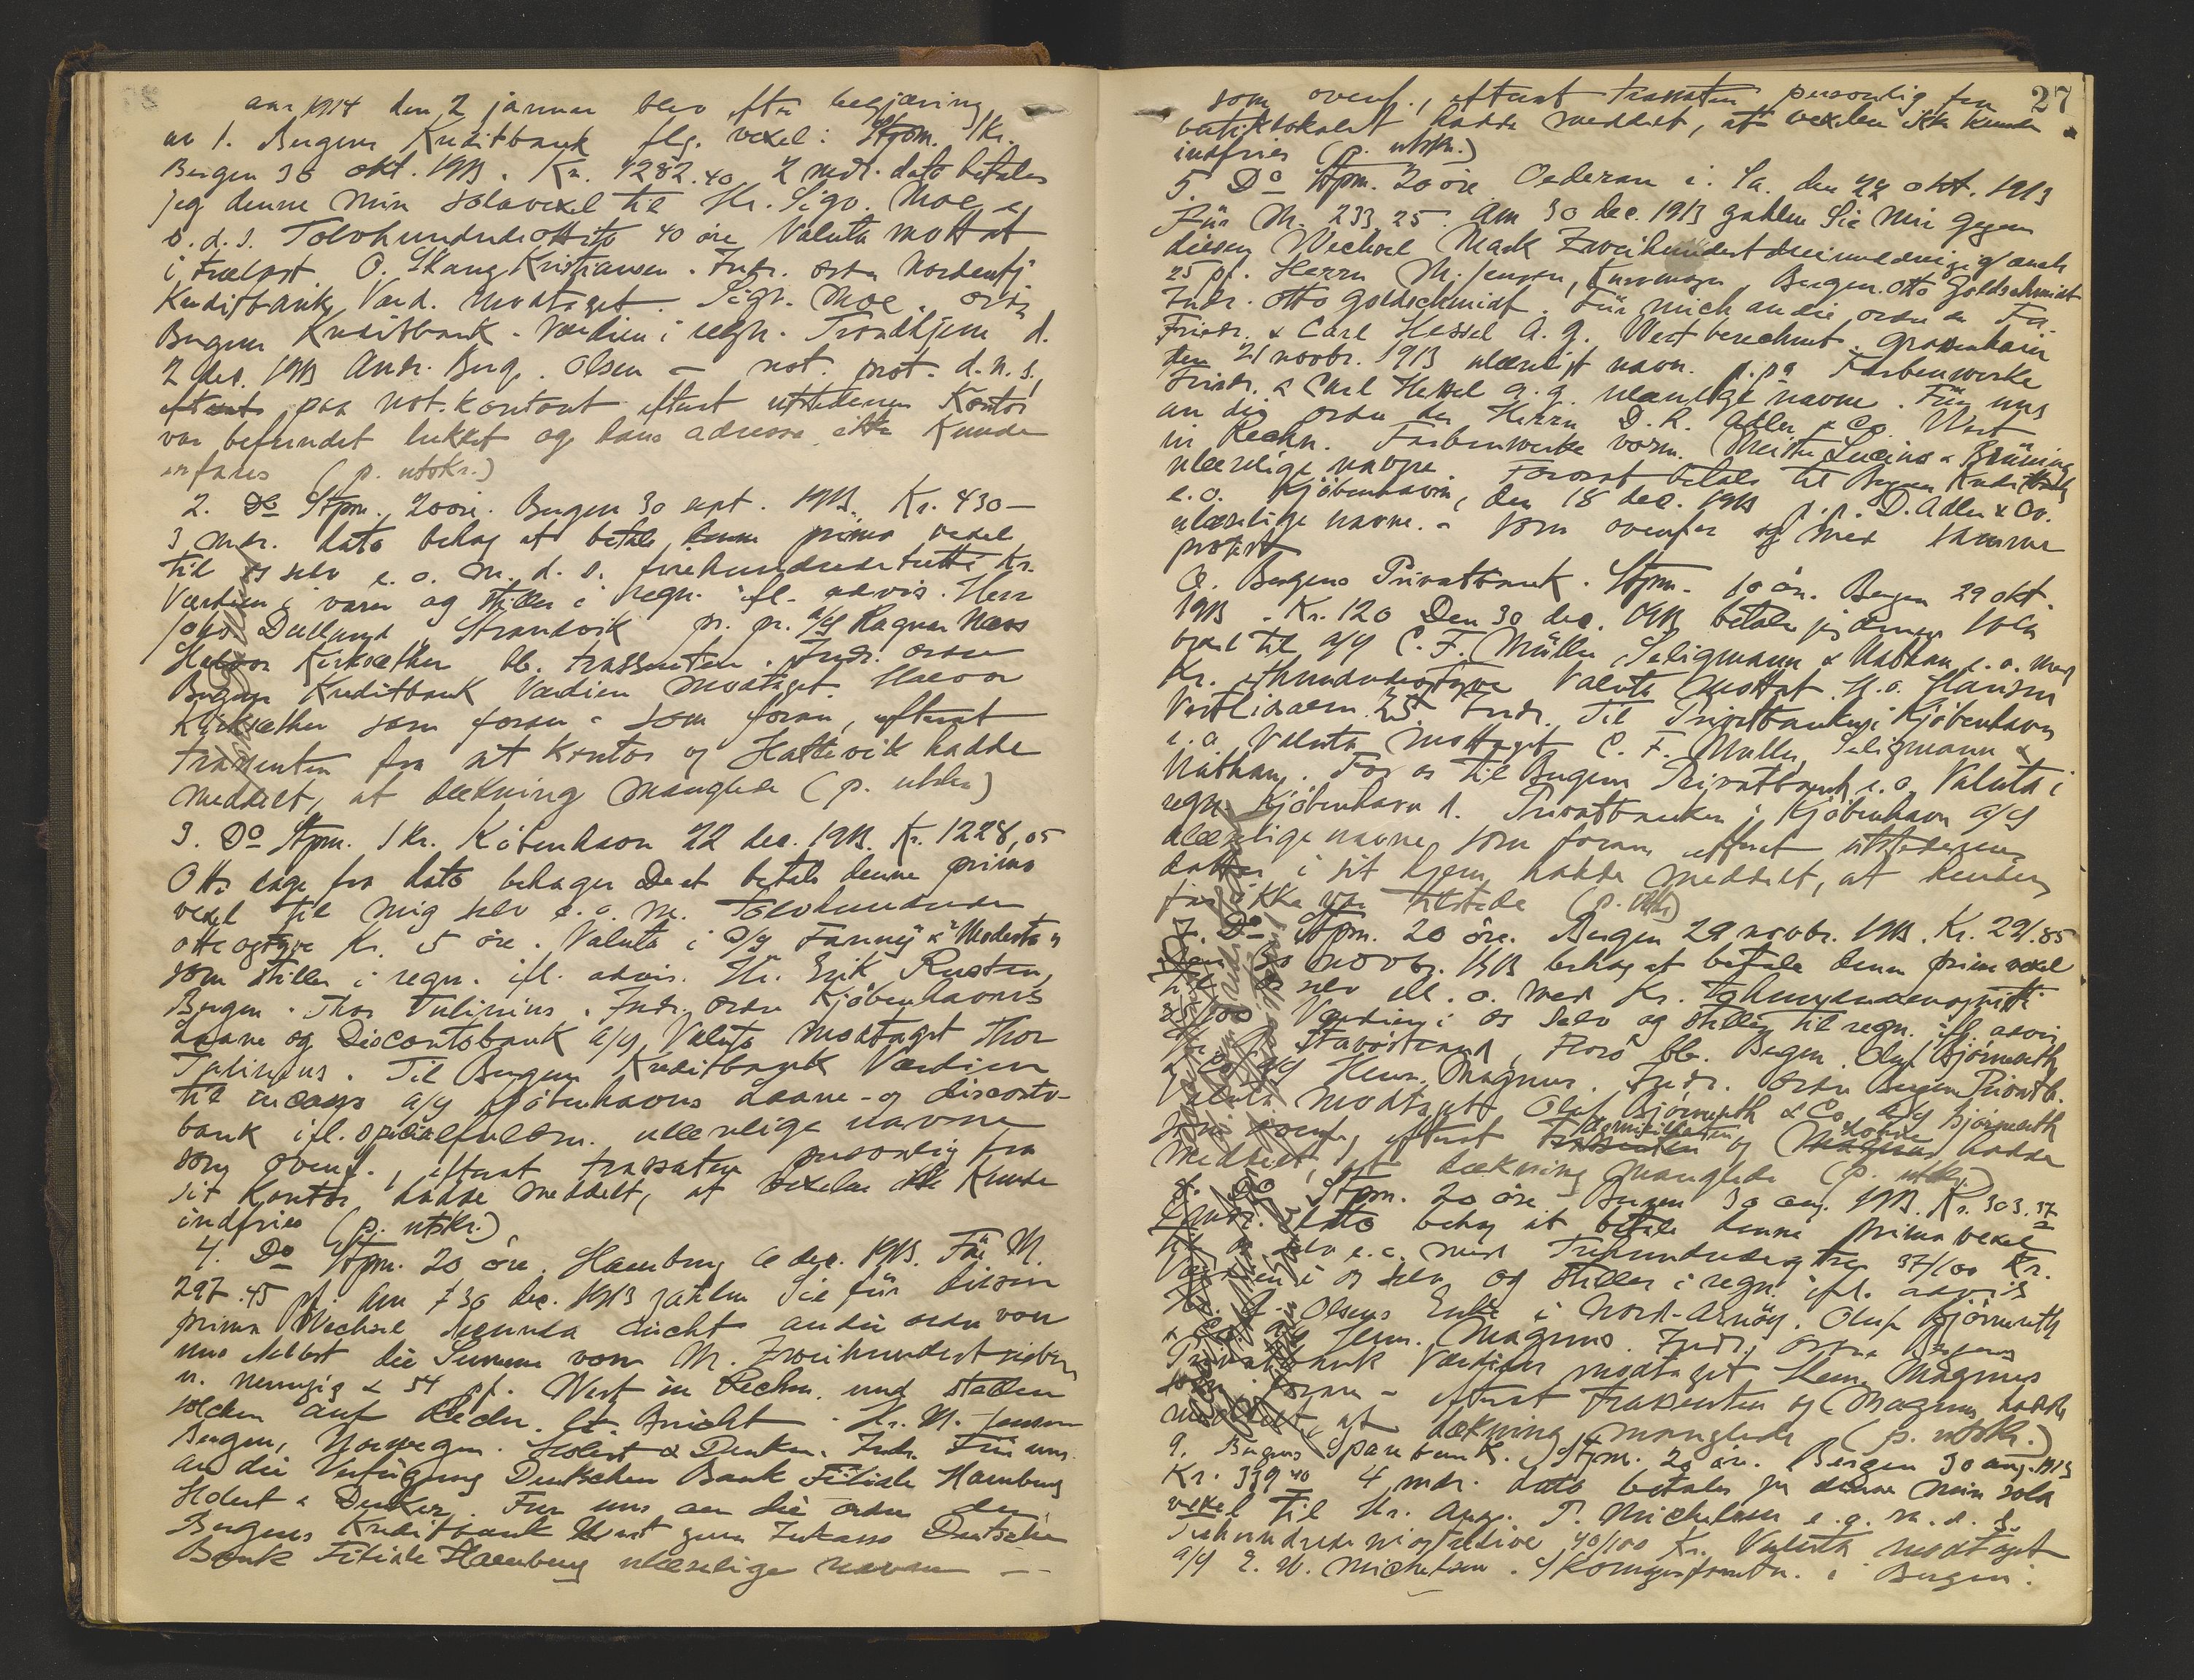 aar 1914 den 2 januar blev efter begjæring
av 1. Bergens Kreditbank flg. vexel: Stpm. 1 kr.
Bergen 30 okt. 1913. Kr. 1282.40 2 mdr. dato betales
jeg denne min solavexel til Hr. Sigv. Moe e.
o. d. s. Tolvhundredeottito 40 øre Valuta mottat
i trælast O. Skaug Kristiansen. Indr. ordre Nordenfj
Kreditbank Værd. modtaget. Sigv. Moe. ordre
Bergens Kreditbank - Værdien i regn. Trondhjem d.
2 des. 1913 Andr. Berg. Olsen - not. prot. d. n. s.,
efterat paa not. kontoret efterat utstederens Kontor
var befundet lukket og hans adresse ikke Kunde
erfares (p. utskr.)
2. Do Stpm. 20 øre. Bergen 30 sept. 1913. Kr. 430 -
3 mdr. dato behag at betale denne prima vexel
til os selv e. o. m. d. s. firehundredetretti Kr.
Værdien i varer og stilles i regn. ifl. advis. Herr
Strandvik pr. pr. a/s Ragnar Næss
Halvor Kirksæther bb. trassenten. Indr. ordre
Bergens Kreditbank Værdien modtaget. Halvor
Kirksæther som foran - som foran, efterat
trassenten fra sit Kontor og Hattevik hadde
meddelt, at dækning manglede (p. utskr.)
3. Do Stpm. 1 kr. København 22 dec. 1913. Kr. 1228,05
Otte dage fra dato behager De at betale denne prima
vexel til mig selv e. o. m. Tolvhundrede
otte og tyve Kr. 5 øre. Valuta i D/S Fanny & "Modesta"
som stilles i regn. ifl. advis. Hr. Erik Rusten,
Bergen. Thor Tulinius. Indr. ordre Kjøbenhavns
Laane og Discontobank a/s Valuta modtaget Thor
Tulinius. Til Bergens Kreditbank Værdien
til incasso a/s Kjøbenhavns Laane- og disconto-
bank ifl. specialfuldm. ulæselige navne
som ovenf., efterat trassaten personlig fra
sit Kontor hadde meddelt, at vexelen ikke Kunde
indfries (p. utskr.)
4. Do Stpm. 20 øre. Hamburg 6 dec. 1913. Für M.
297.45 pf. Am 30 dec. 1913 zahlen Sie für diesen
prima Wechsel secunda nicht an die order von
uns selbst die Summe von M. Zweihundertsieben
u. neunzig & 54 pf. Wert in Rechn. und stellen
solchen auf Rechn. lt. Bericht. Hr. M. Jensen
Bergen, Norwegen. Holert & Denker. Indr. Für uns
an die Verfügung Deutschen Bank Filiale Hamburg
Holert & Denker. Für uns an die order der
Bergens Kreditbank Wert zum Inkasso Deutsche
Bank Filiale Hamburg ulæselige navne -
27
som ovenf., efterat trassaten personlig fra
butiklokalet hadde meddelt, at vexelen ikke kunde
indfries (p. utskr.)
5. Do Stpm. 20 øre Oederan i. Sa. den 22 okt. 1913
Für M. 233.25. Am 30 dec. 1913 zahlen Sie mir gegen
diesen Wechsel Mark Zweihundertdreiunddreissig auch
25 pf. Herrn M. Jensen, Bergen. Otto Goldschmidt
Indr. Otto Goldschmidt. Für mich an die order der Fa.
Friedr. & Carl Hessel A. G. Wert berechnet. Grossenhain
den 21 novbr. 1913 ulæseligt navn. p. pa Farbenwerke
Friedr. & Carl Hessel a. g. ulæselige navne. Für uns
an die order der Herrn D. R. Adler & Co. Wert
in Rechn. Farbenwerke vorm. Meister Lucius & Brüning
ulæselige navne. Forrest betales til Bergens Kreditbank
e. o. Kjøbenhavn, den 18 dec. 1913 p. p. D. Adler & Co.
ulæselige navne. - som ovenfor og med samme
protest
6. Bergens Privatbank. Stpm. 10 øre. Bergen 29 okt.
1913. Kr. 120 Den 30 dec. 1913 betaler jeg denne sola
vexel til a/s C. F. Müller, Seligmann & Nathan e. o. med
Kr. ethundredeogtyve Valuta mottat. H. O. Hansen
Vestlidsalm. 25. Indr. Til Privatbanken i Kjøbenhavn
e. o. Valuta mottaget C. F. Müller, Seligmann &
Nathan. For os til Bergens Privatbank e. o. Valuta i
regn. Kjøbenhavn d. Privatbanken i Kjøbenhavn a/s
ulæselige navne som foran efterat utstederens
datter i sit hjem hadde meddelt, at hendes
far ikke var tilstede (p. utskr.)
7. Do Stpm. 20 øre. Bergen 29 novbr. 1913. Kr. 291.85
Den 30 novbr. 1913 behag at betale denne prima vexel
til os selv ell. o. med Kr. Tohundredeenognitti
85/100 Værdien i os selv og stilles til regn. ifl. advis
Stavøstrand, Florø bb. Bergen. Oluf Bjørneseth
& Co. a/s Henr. Magnus. Indr. Ordre Bergens Privatb.
Valuta modtaget Oluf Bjørneseth & Co. a/s Bjørneseth
som ovenf., efterat domiciliaten og hadde
meddelt, at dækning manglede (p. utskr.)
8. Do Stpm. 20 øre Bergen 30 aug. 1913. Kr. 303.37
4 mdr. dato behag at betale denne prima vexel
til os selv e. o. med Trehundredeogtre 37/100 Kr.
Værdien i os selv og stilles i regn. ifl. advis
Olsens Enke i Nord-Arnøy. Oluf Bjørneseth
& Co. a/s Henr. Magnus. Indr. Ordre Bergens
Privatbank Værdien modtaget Henr. Magnus
som foran - efterat trassenten og Magnus hadde
meddelt, at dækning manglede (p. utskr.)
9. Bergens Sparebank. Stpm. 20 øre. Bergen 30 aug. 1913
Kr. 339 40 4 mdr. dato betaler jeg denne min sola
vexel til Hr. Aug. T. Michelsen e. o. m. d. s.
Trehundredeniogtredive 40/100 Kr. Valuta modtaget
a/s E. W. Michelsen. i Bergen.